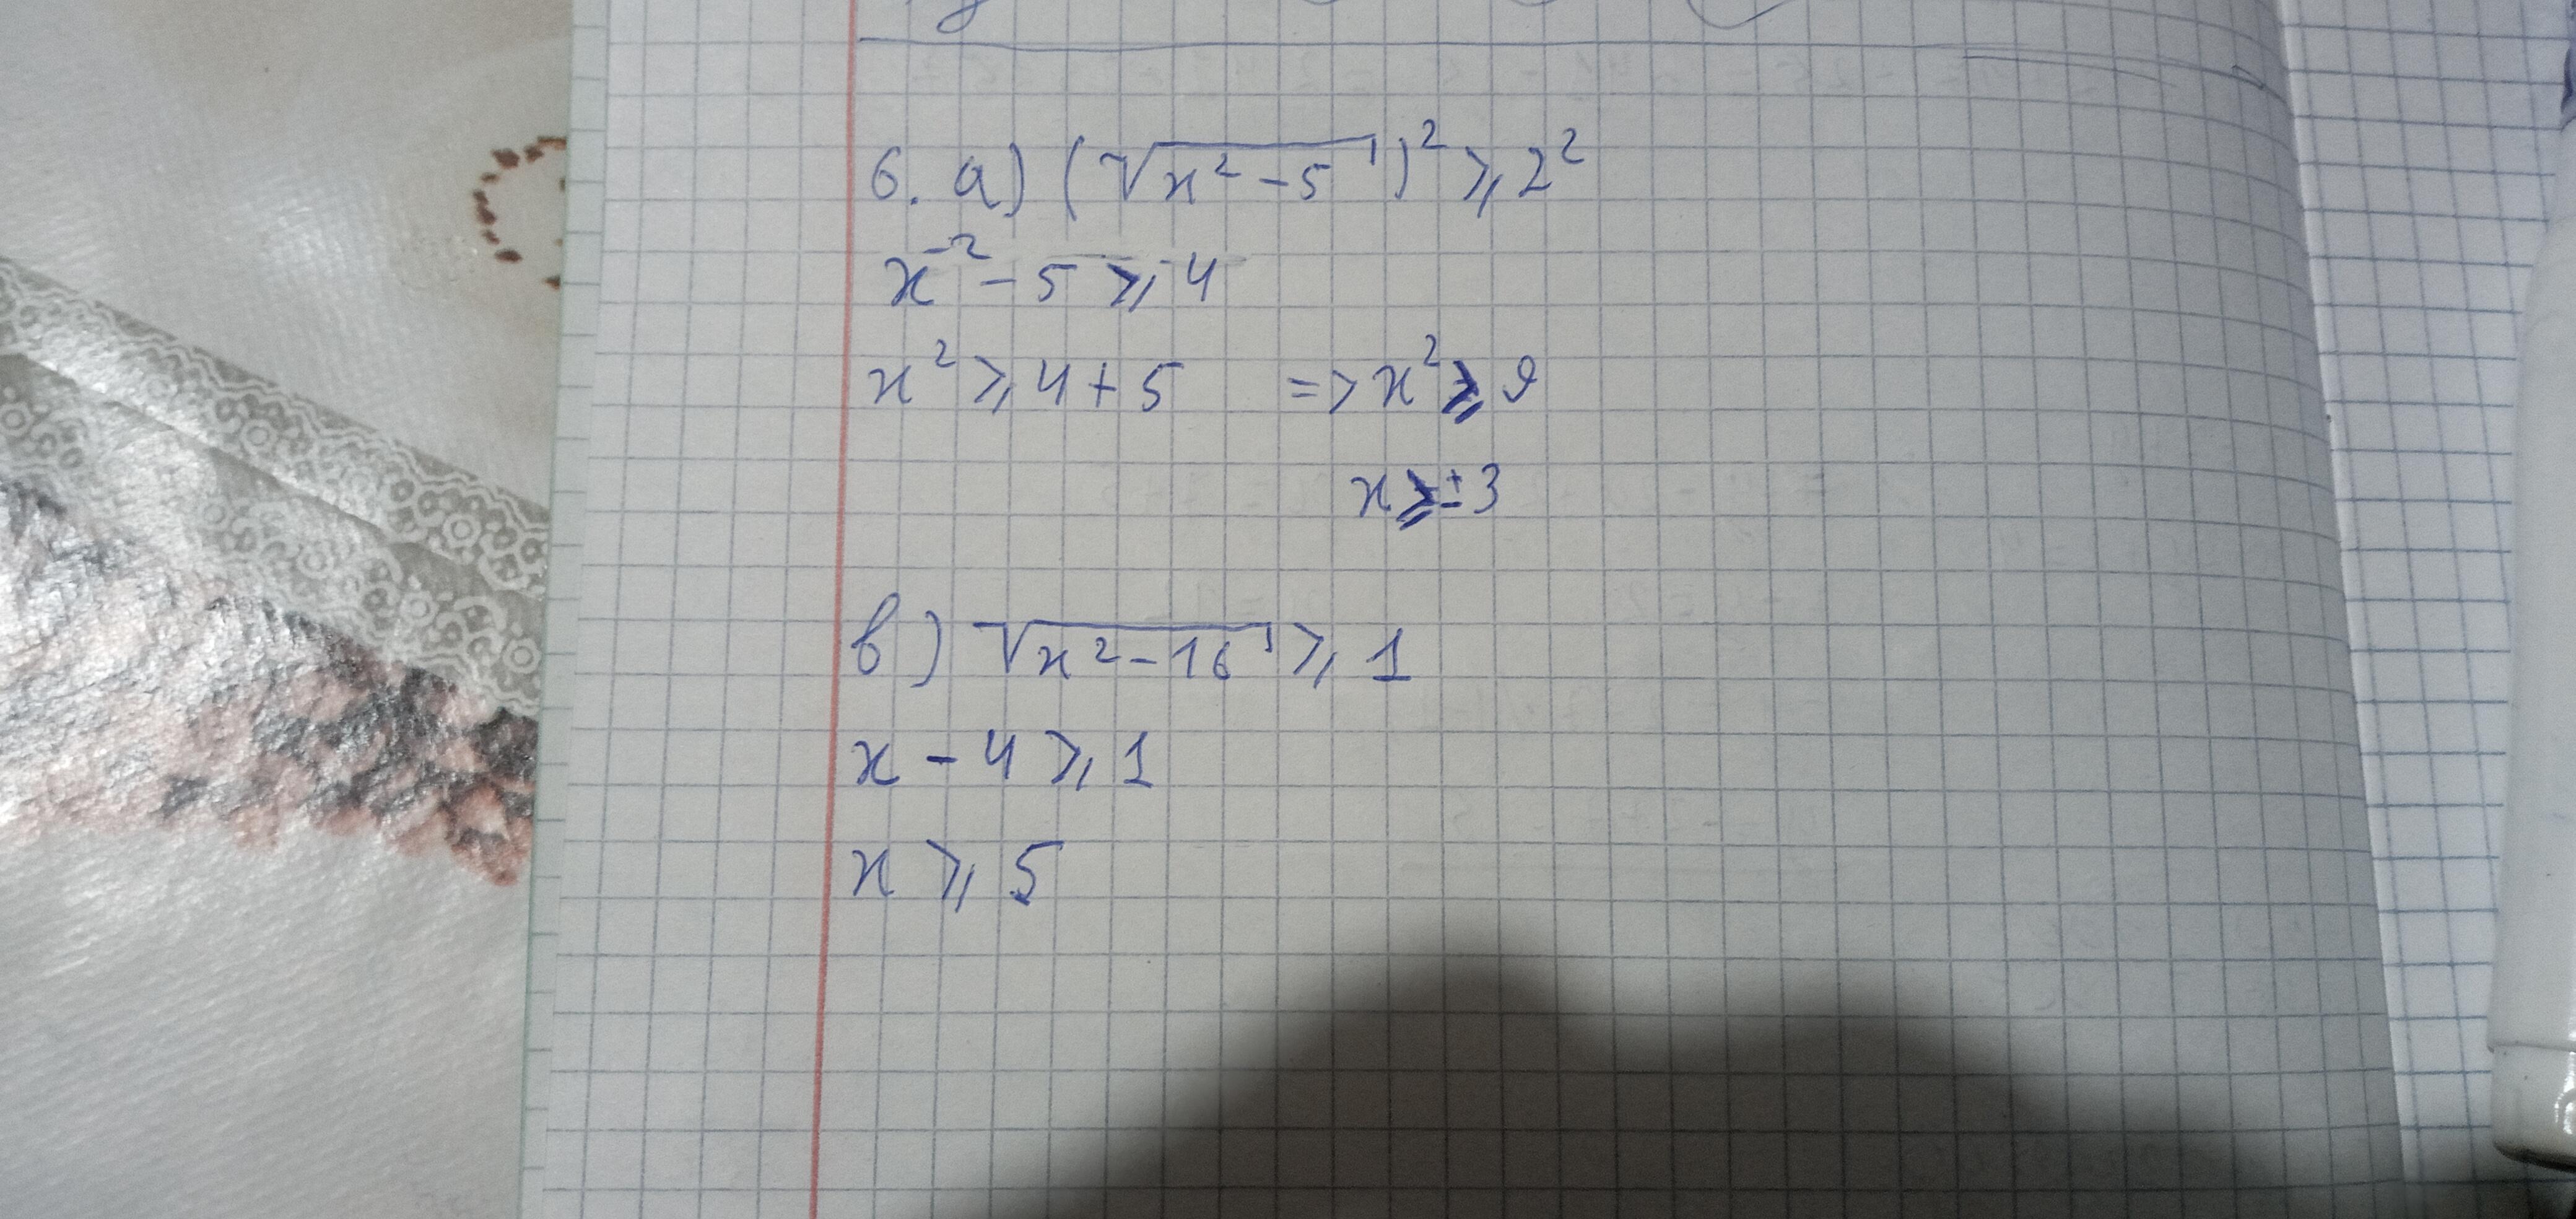 6. а) (√(x² - 5))² ⩾ 2²
x² - 5 ⩾ 4
x² ⩾ 4 + 5 => x² ⩾ 9
x ⩾ ± 3
в) √(x² - 16) ⩾ 1
x - 4 ⩾ 1
x ⩾ 5